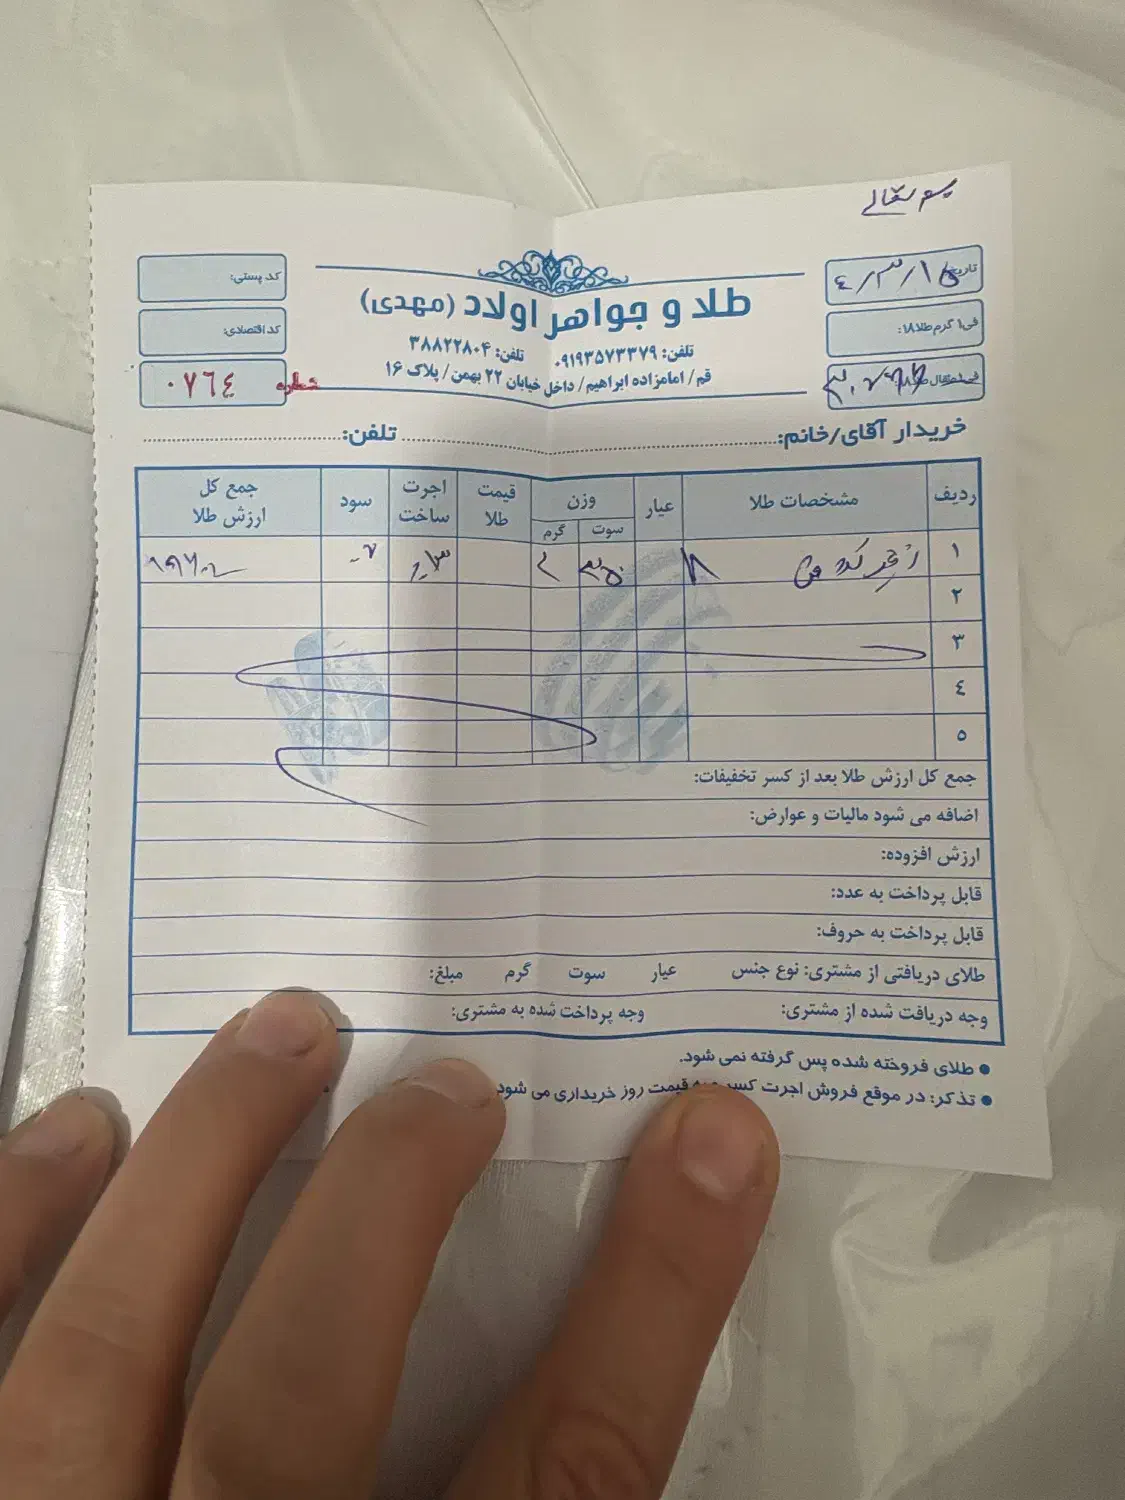 بسم تعالی
کد پستی:
کد اقتصادی:
شماره ۰۷۶٤
طلا و جواهر اولاد (مهدی)
تلفن: ۰۹۱۹۳۵۷۳۳۷۹ تلفن: ۳۸۸۲۲۸۰۴
قم/ امامزاده ابراهیم/ داخل خیابان ۲۲ بهمن/ پلاک ۱۶
تاریخ
فی۱ گرم طلا۱۸:
خریدار آقای/خانم: تلفن:
ردیف مشخصات طلا عیار وزن سوت گرم قیمت طلا اجرت ساخت سود جمع کل ارزش طلا
۱
۲
۳
٤
۵
جمع کل ارزش طلا بعد از کسر تخفیفات:
اضافه می شود مالیات و عوارض:
ارزش افزوده:
قابل پرداخت به عدد:
قابل پرداخت به حروف:
طلای دریافتی از مشتری: نوع جنس عیار سوت گرم مبلغ:
وجه دریافت شده از مشتری: وجه پرداخت شده به مشتری:
● طلای فروخته شده پس گرفته نمی شود.
● تذکر: در موقع فروش اجرت کسر قیمت روز خریداری می شود